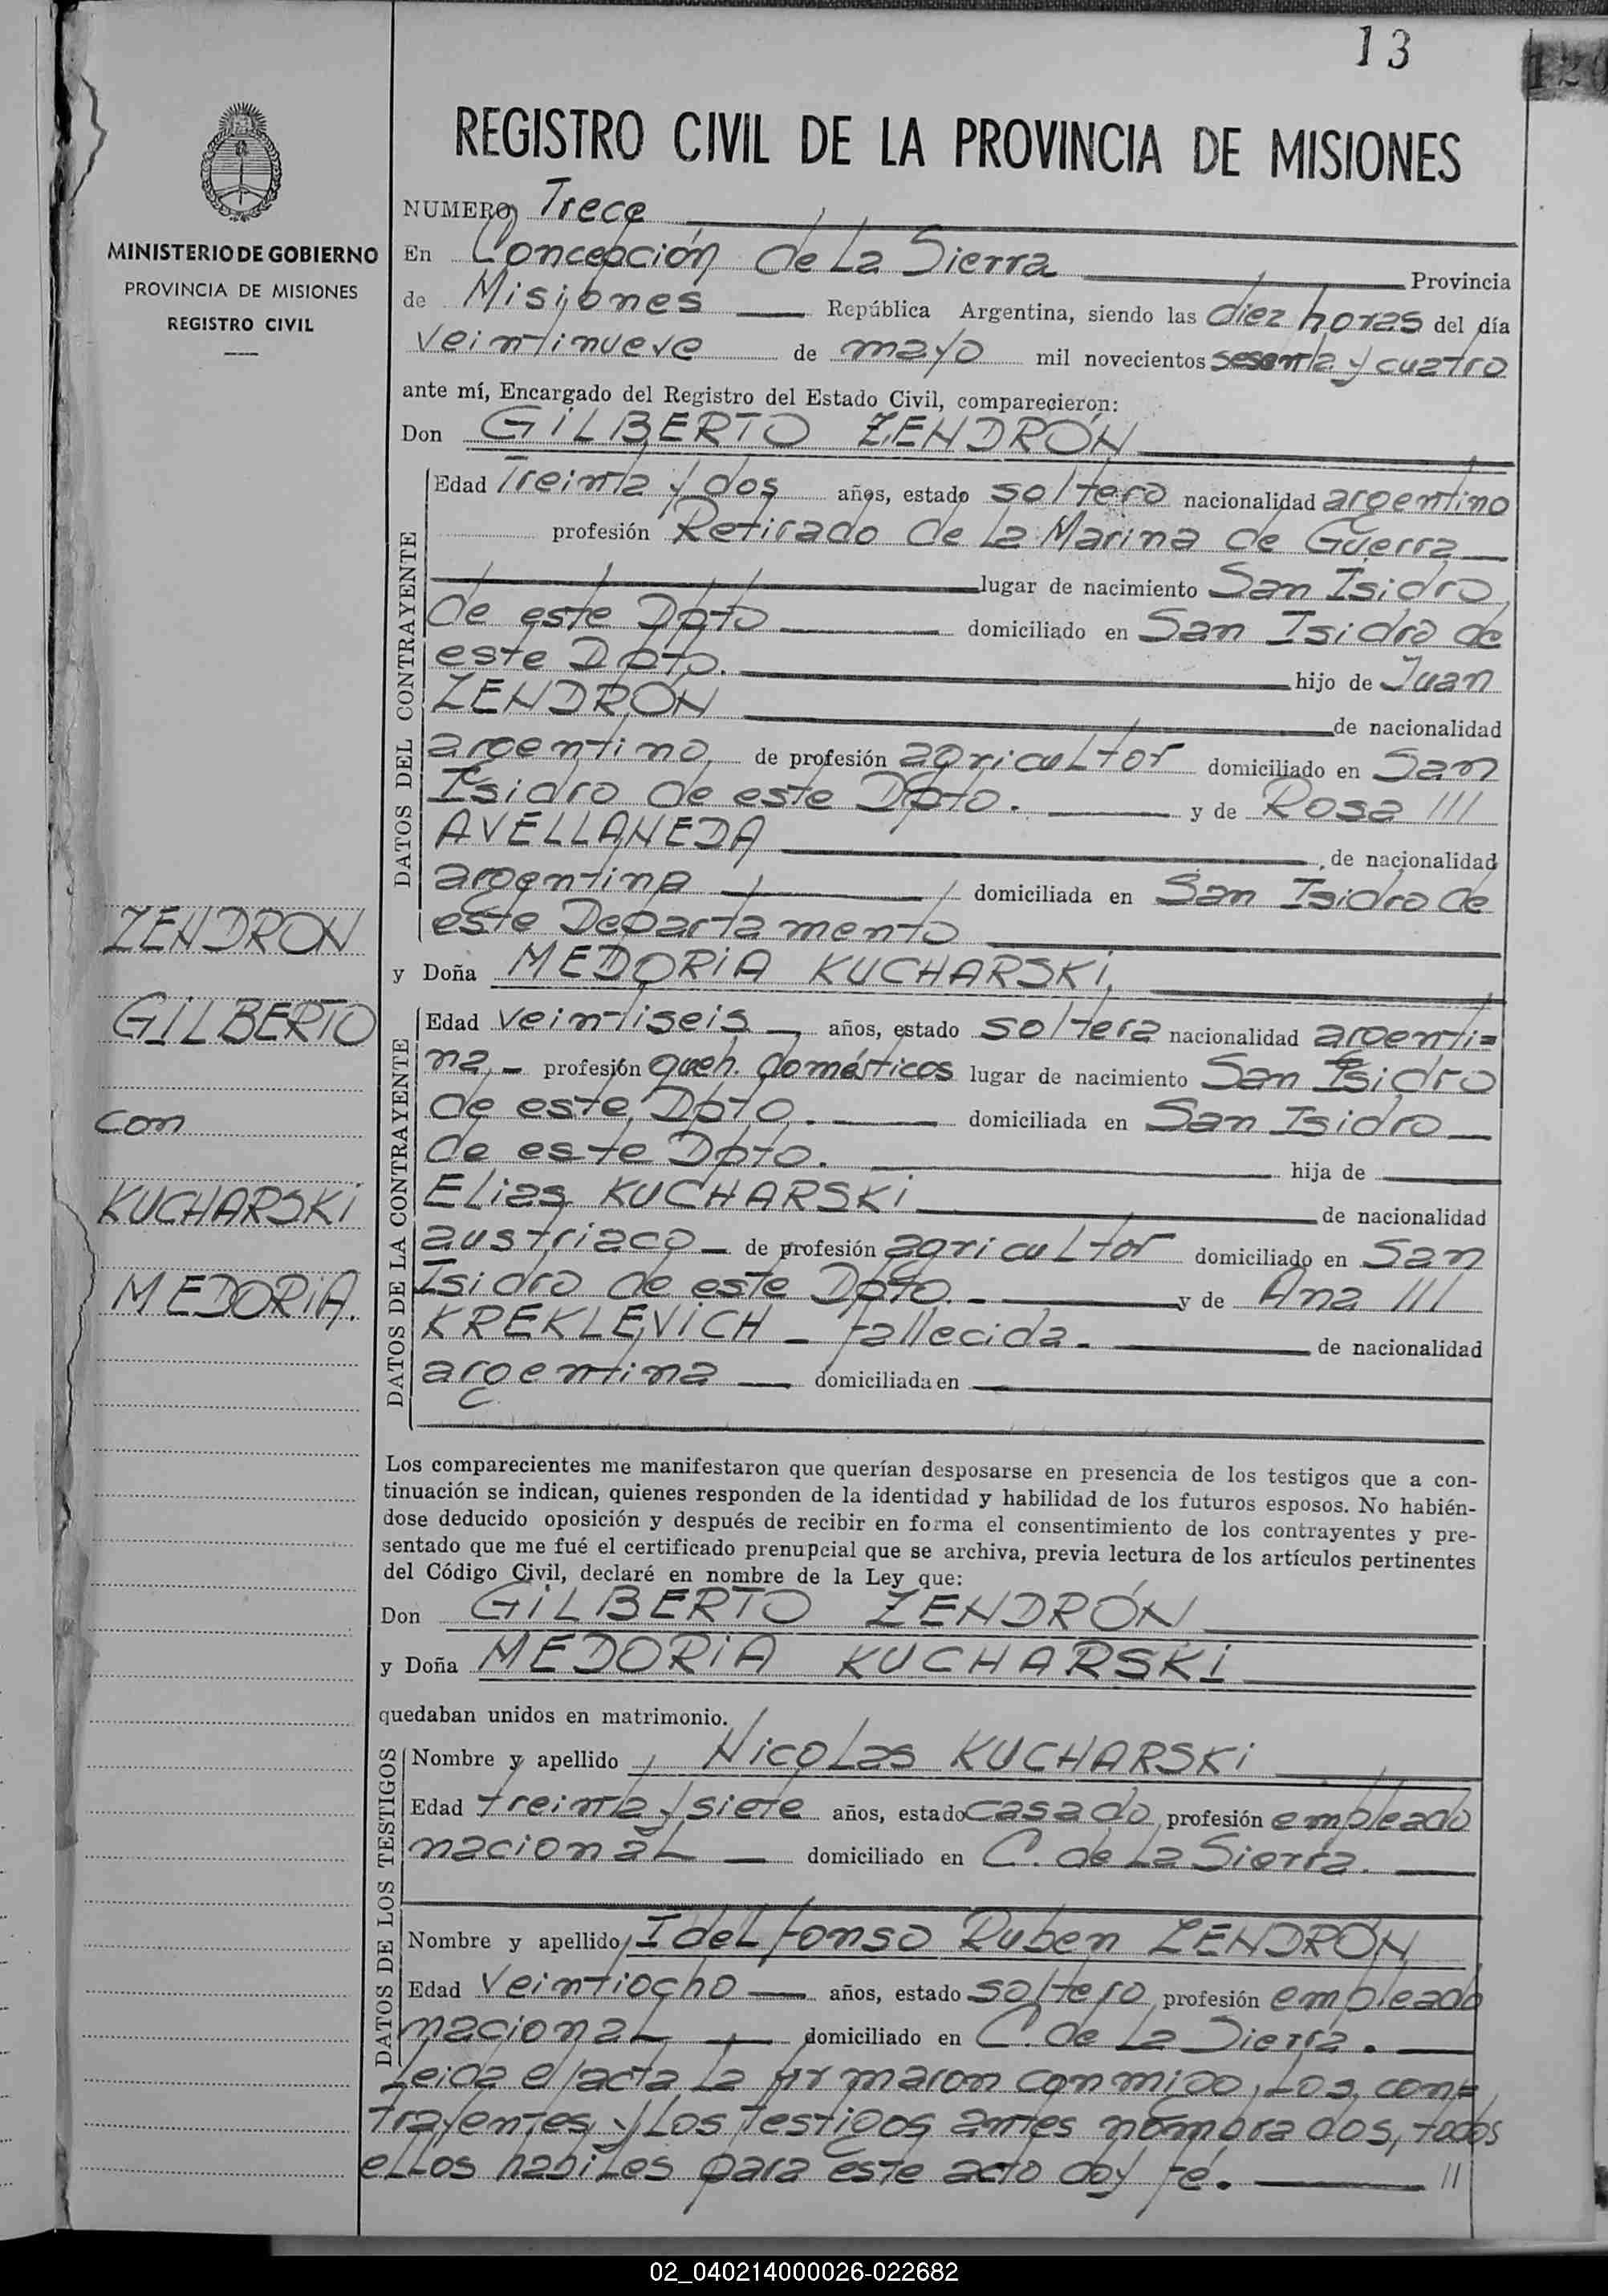 13
120
REGISTRO CIVIL DE LA PROVINCIA DE MISIONES
MINISTERIO DE GOBIERNO
PROVINCIA DE MISIONES
REGISTRO CIVIL
NUMERO Trece
En Concepción de La Sierra Provincia
de Misiones República Argentina, siendo las diez horas del día
veintinueve de mayo mil novecientos sesenta y cuatro
ante mí, Encargado del Registro del Estado Civil, comparecieron:
Don GILBERTO ZENDRÓN
DATOS DEL CONTRAYENTE
Edad Treinta y dos años, estado soltero nacionalidad argentino
profesión Retirado de La Marina de Guerra
lugar de nacimiento San Isidro
de este Dpto domiciliado en San Isidro de
este Dpto. hijo de Juan
ZENDRÓN de nacionalidad
argentino, de profesión agricultor domiciliado en San
Isidro de este Dpto. y de Rosa ///
AVELLANEDA de nacionalidad
argentina domiciliada en San Isidro de
este Departamento
y Doña MEDORIA KUCHARSKI,
DATOS DE LA CONTRAYENTE
Edad veintiseis años, estado soltera nacionalidad argenti=
na, profesión queh. domésticos lugar de nacimiento San Isidro
de este Dpto. domiciliada en San Isidro
de este Dpto. hija de
Elias KUCHARSKI de nacionalidad
austriaco de profesión agricultor domiciliado en San
Isidro de este Dpto. y de Ana ///
KREKLEVICH - fallecida. de nacionalidad
argentina domiciliada en
ZENDRON
GILBERTO
con
KUCHARSKI
MEDORIA.
Los comparecientes me manifestaron que querían desposarse en presencia de los testigos que a con-
tinuación se indican, quienes responden de la identidad y habilidad de los futuros esposos. No habién-
dose deducido oposición y después de recibir en forma el consentimiento de los contrayentes y pre-
sentado que me fué el certificado prenupcial que se archiva, previa lectura de los artículos pertinentes
del Código Civil, declaré en nombre de la Ley que:
Don GILBERTO ZENDRÓN
y Doña MEDORIA KUCHARSKI
quedaban unidos en matrimonio.
DATOS DE LOS TESTIGOS
Nombre y apellido Nicolas KUCHARSKI
Edad treinta y siete años, estado casado, profesión empleado
nacional domiciliado en C. de La Sierra.
Nombre y apellido Idelfonso Ruben ZENDRÓN
Edad veintiocho años, estado soltero, profesión empleado
nacional domiciliado en C. de La Sierra.
Leida el acta la firmaron conmigo, Los con=
trayentes y Los testigos antes nombrados, todos
ellos habiles para este acto doy fé. //
02_040214000026-022682